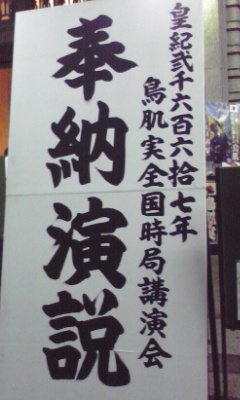 皇紀弐千六百六拾七年
鳥肌実全国時局講演会
奉納演説